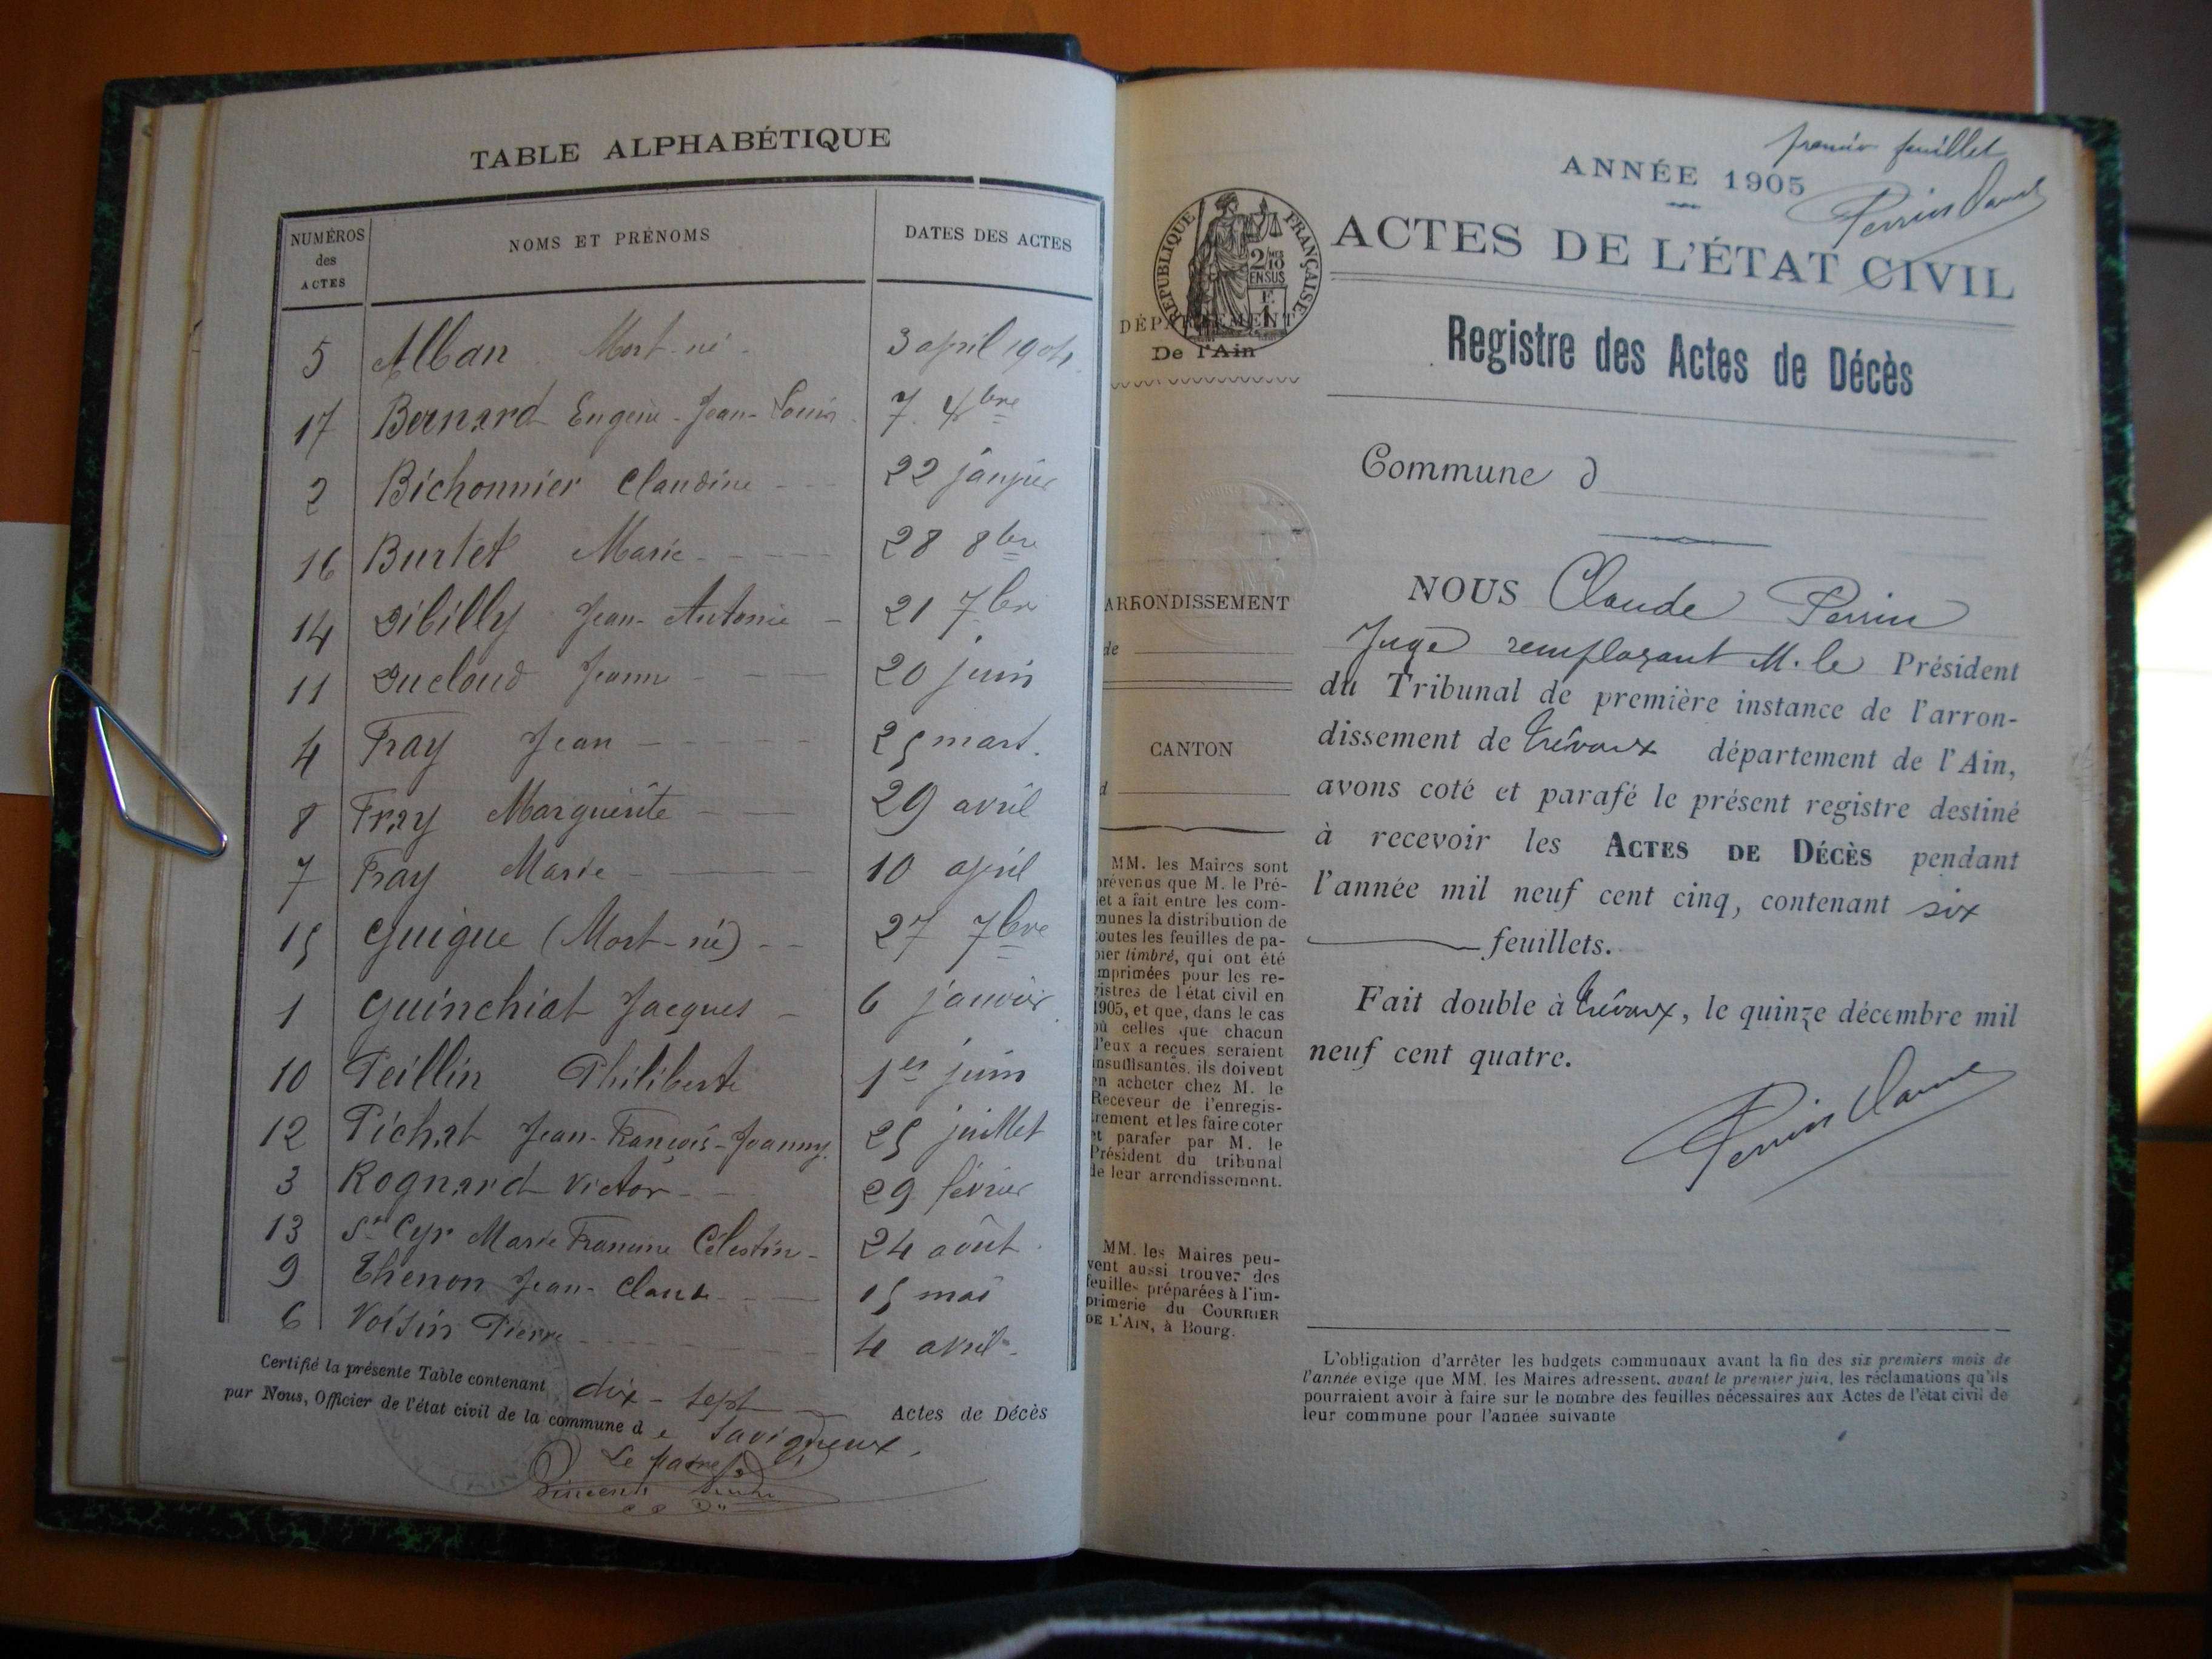 TABLE ALPHABÉTIQUE
NUMÉROS des ACTES NOMS ET PRÉNOMS DATES DES ACTES
5 Alban Mort-né 3 april 1904
17 Bernard Eugène-Jean-Louis 7. 4bre
2 Bichonnier Claudine 22 janvier
16 Burtet Marie 28 8bre
14 Dibilly Jean-Antonie 21 7bre
11 Ducloud Jeanne 20 juin
4 Fray Jean 25 mars.
8 Fray Marguerite 29 avril
7 Fray Marie 10 april
15 Guigue (Mort-né) 27 7bre
1 Guinchiat Jacques 6 janvier
10 Peillin Philiberte 1er juin
12 Pichat Jean-François-Joanny. 25 juillet
3 Rognard Victor 29 février
13 St Cyr Marie Francine Célestin 24 août
9 Thenon Jean-Claude 15 mai
6 Voisin Pierre 4 avril
Certifié la présente Table contenant dix-sept Actes de Décès
par Nous, Officier de l'état civil de la commune de Savigneux,
Le Maire
premier feuillet
ANNÉE 1905
Perrin Claude
ACTES DE L'ÉTAT CIVIL
RÉPUBLIQUE FRANÇAISE
2/10 EN SUS
DÉPARTEMENT
De l'Ain
Registre des Actes de Décès
Commune d
ARRONDISSEMENT
de
CANTON
d
NOUS Claude Perrin
Juge remplaçant M. le Président
du Tribunal de première instance de l'arron-
dissement de Trévoux département de l'Ain,
avons coté et parafé le présent registre destiné
à recevoir les ACTES DE DÉCÈS pendant
l'année mil neuf cent cinq, contenant six
feuillets.
Fait double à Trévoux, le quinze décembre mil
neuf cent quatre.
Perrin Claude
MM. les Maires sont
prévenus que M. le Pré-
et a fait entre les com-
munes la distribution de
toutes les feuilles de pa-
pier timbré, qui ont été
imprimées pour les re-
gistres de l'état civil en
1905, et que, dans le cas
où celles que chacun
d'eux a reçues seraient
insuffisantes, ils doivent
en acheter chez M. le
Receveur de l'enregis-
trement et les faire coter
et parafer par M. le
Président du tribunal
de leur arrondissement.
MM. les Maires peu-
vent aussi trouver des
feuilles préparées à l'im-
primerie du COURRIER
DE L'AIN, à Bourg.
L'obligation d'arrêter les budgets communaux avant la fin des six premiers mois de
l'année exige que MM. les Maires adressent, avant le premier juin, les réclamations qu'ils
pourraient avoir à faire sur le nombre des feuilles nécessaires aux Actes de l'état civil de
leur commune pour l'année suivante